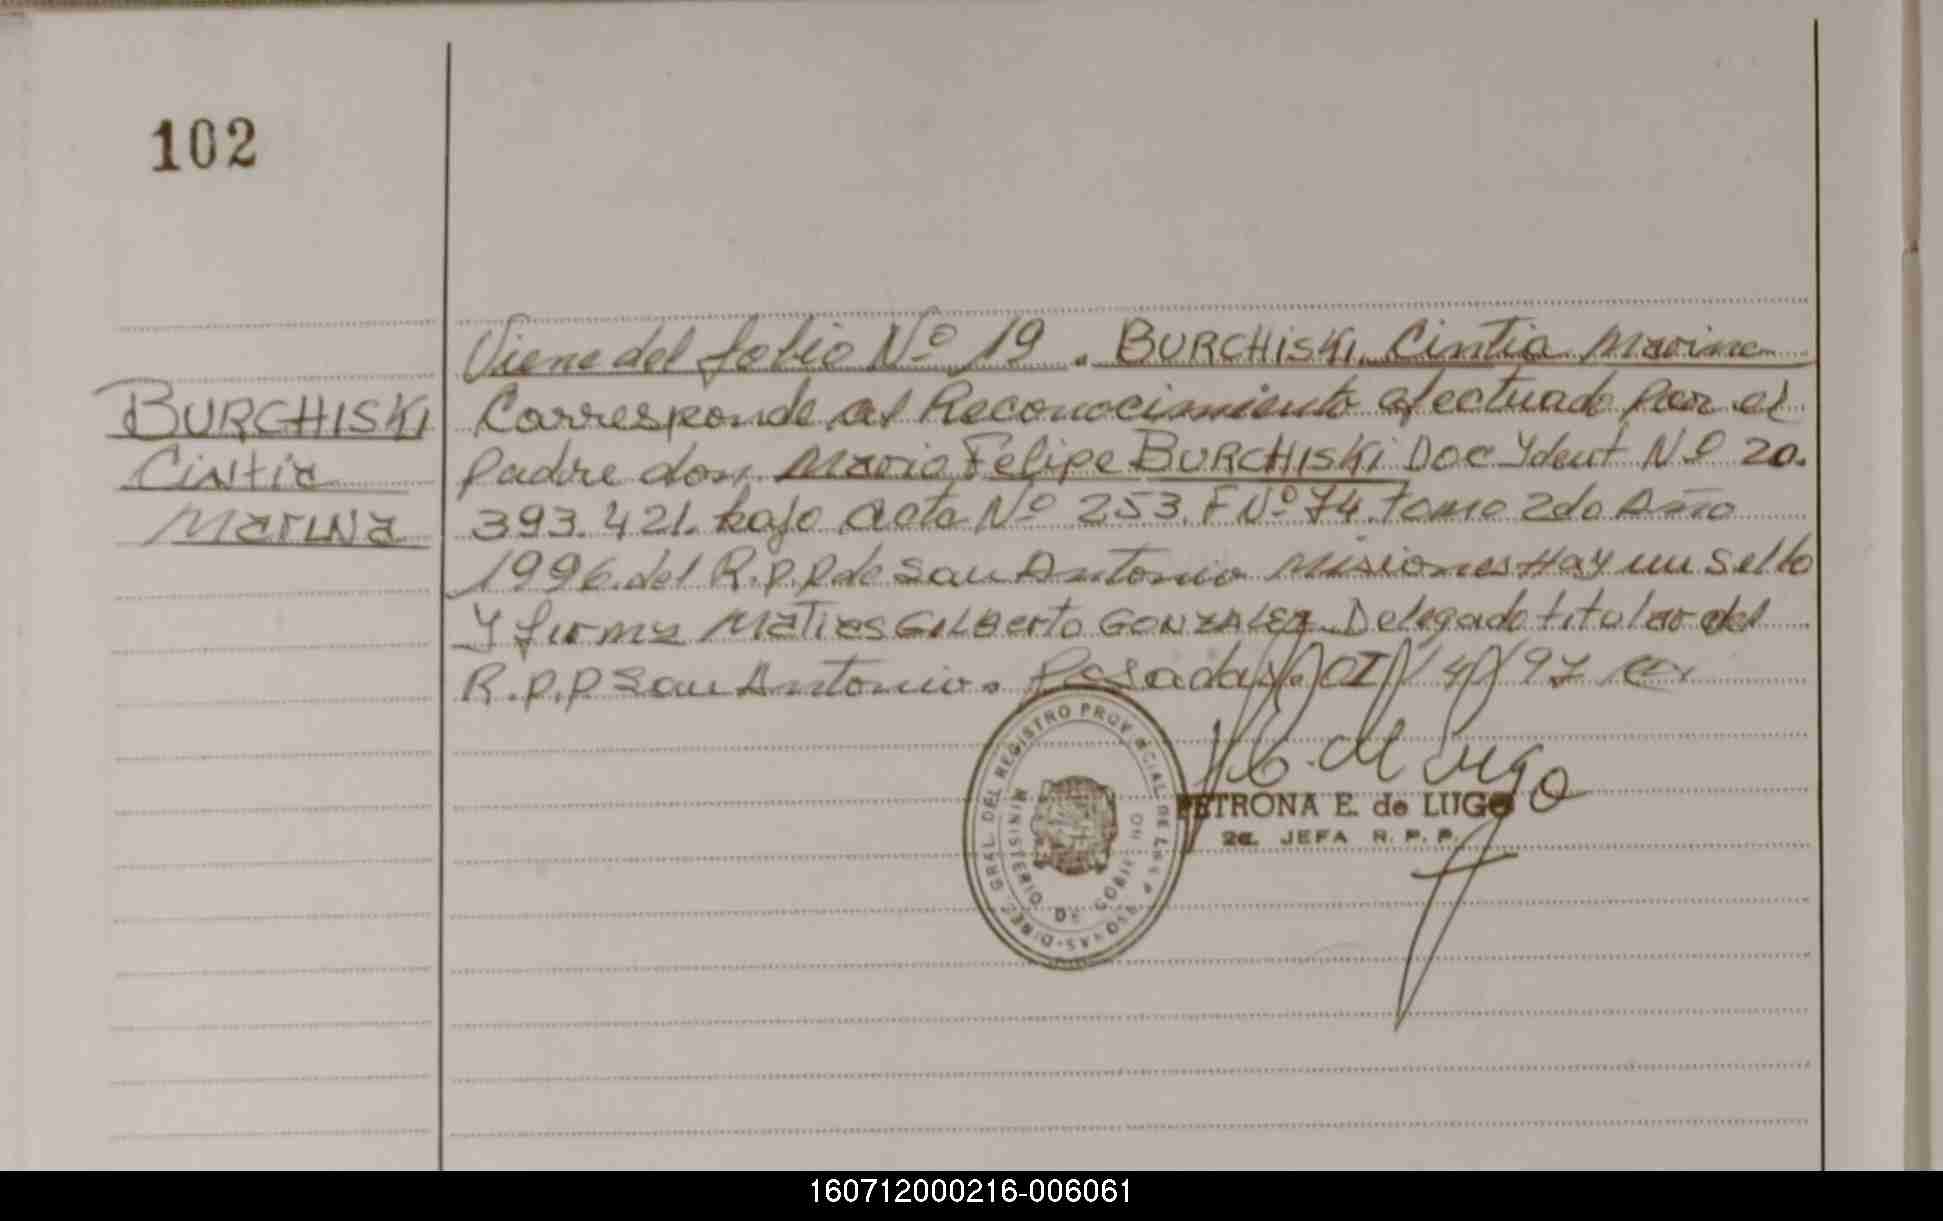 102
BURCHISKI
Cintia
Marina
Viene del folio Nº 19. BURCHISKI Cintia Marina
Corresponde al Reconocimiento efectuado por el
padre don Mario Felipe BURCHISKI Doc Ydent Nº 20.
393.421. bajo acta Nº 253. F Nº 74. tomo 2do Año
1996. del R.P.P de San Antonio Misiones Hay un Sello
Y firma MATIAS GILBERTO GONZALEZ Delegado titular del
R.P.P San Antonio. Posadas. 97
DIREC. GRAL. DEL REGISTRO PROVINCIAL DE LAS PERSONAS
MINISTERIO DE GOBIERNO
PETRONA E. de LUGO
2a. JEFA R. P. P.
160712000216-006061